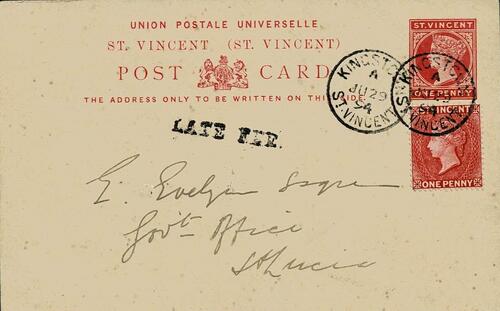 UNION POSTALE UNIVERSELLE
ST. VINCENT (ST. VINCENT)
POST CARD
THE ADDRESS ONLY TO BE WRITTEN ON THIS SIDE
ST. VINCENT
ONE PENNY
KINGSTOWN
A
JU 29
94
ST. VINCENT
KINGSTOWN
A
94
ST. VINCENT
ONE PENNY
LATE FEE.
E. Evelyn Esqre
Govt Office
St Lucia